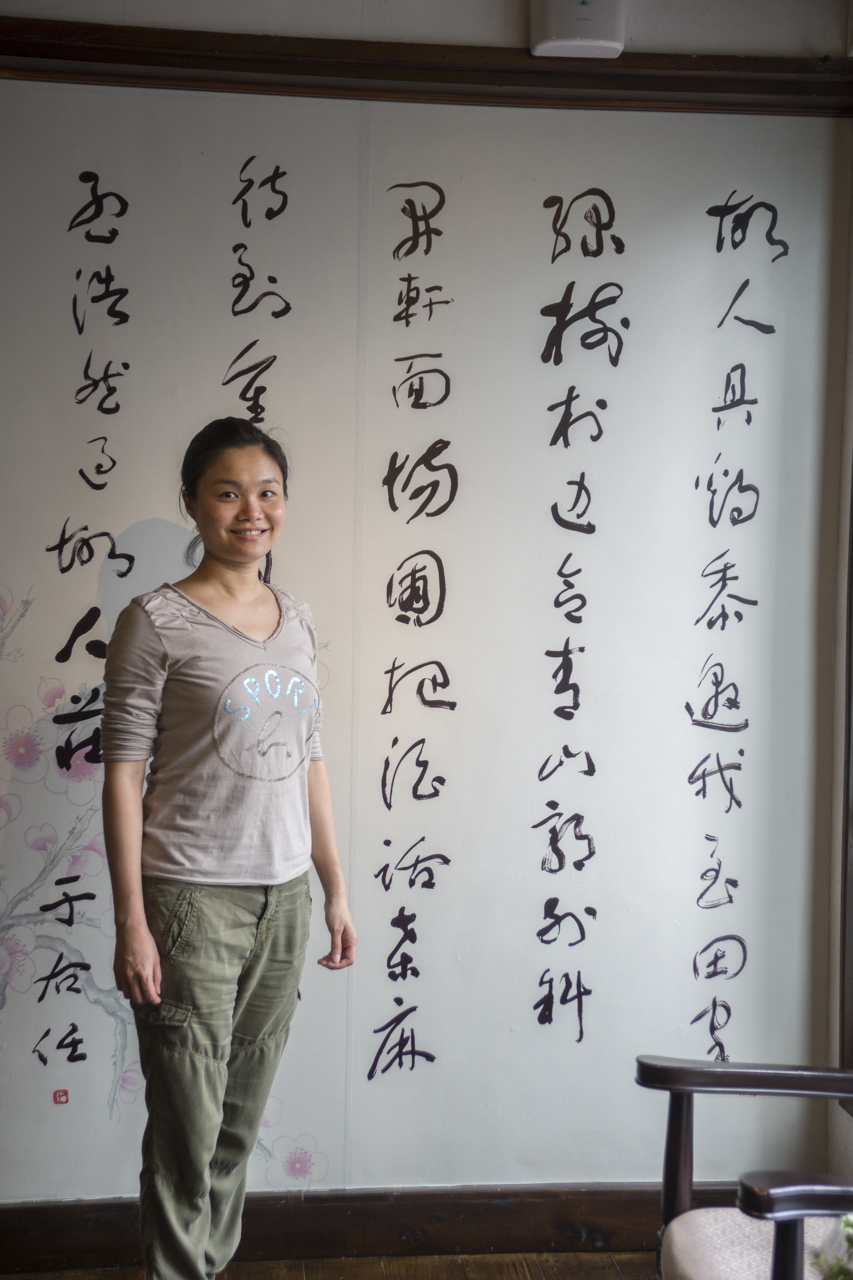 故人具鷄黍邀我至田家
綠樹村边合青山郭外斜
開軒面場圃把酒話桑麻
待到重
孟浩然過故人莊
于右任
SPORT